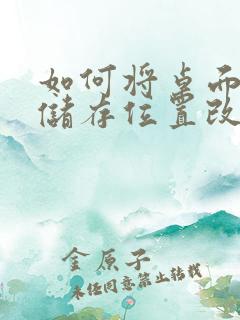 如何将桌面
储存位置改
金原子
未经同意禁止转载